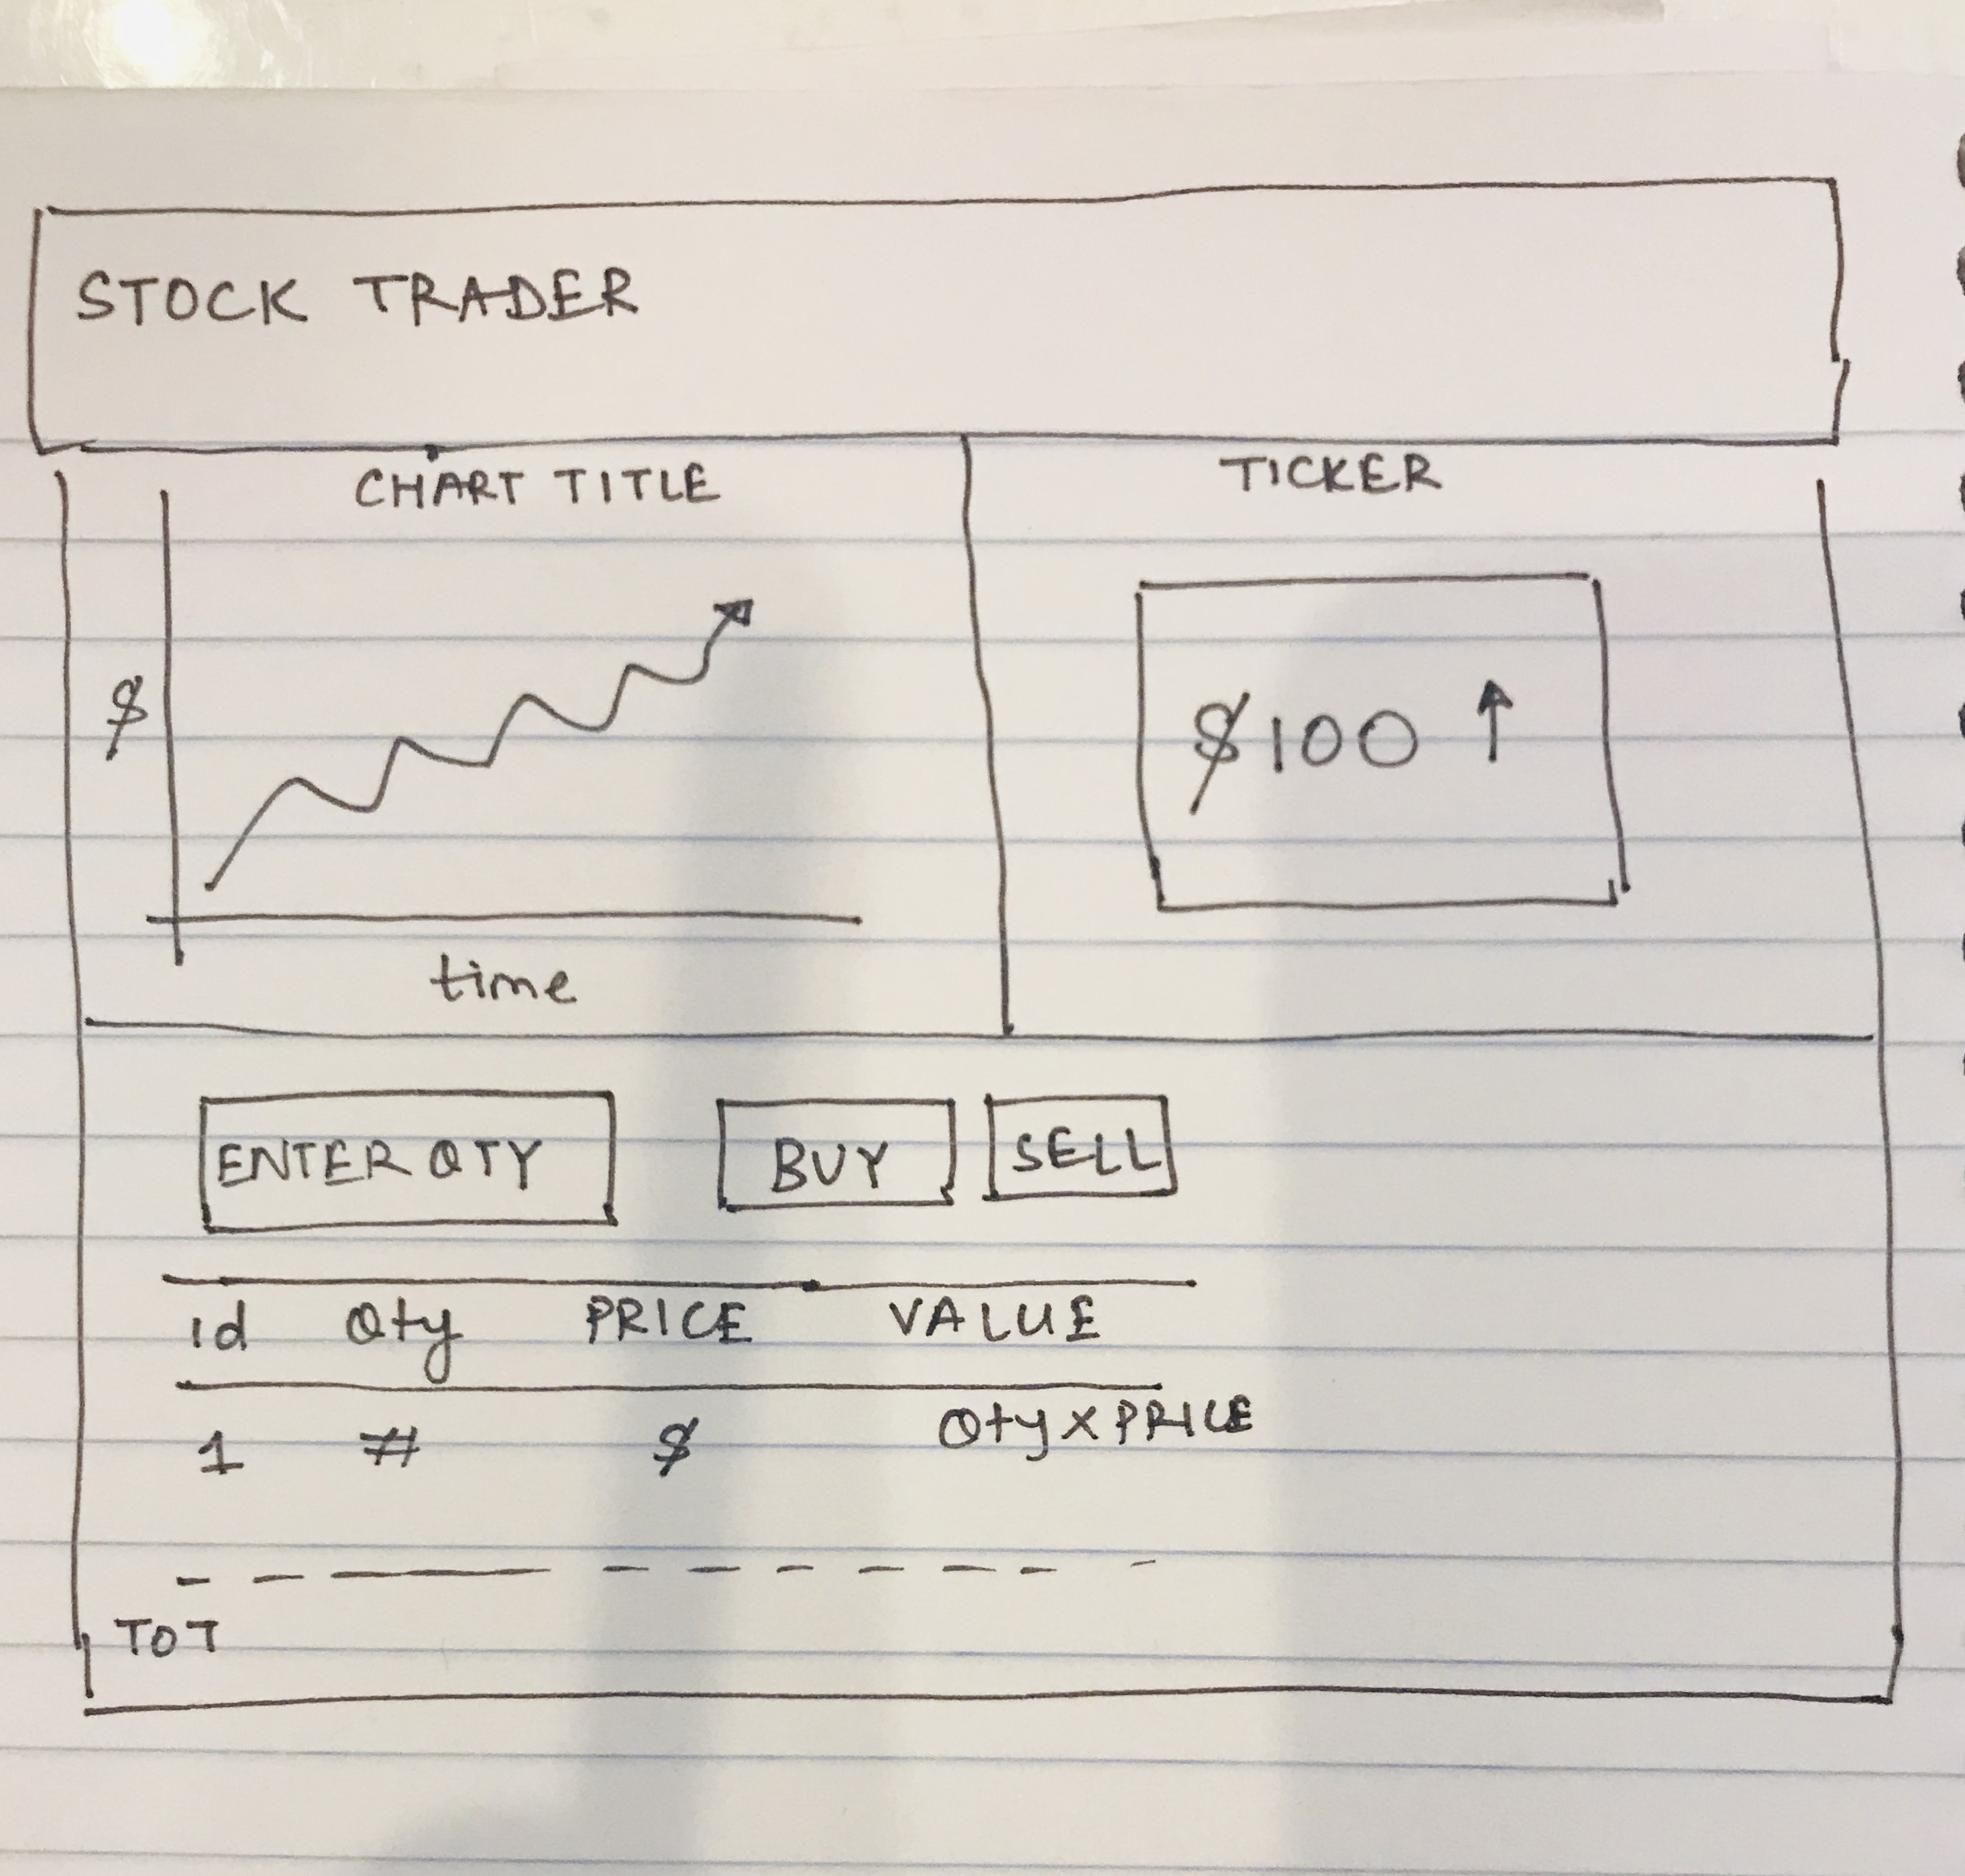 STOCK TRADER
CHART TITLE
$
time
TICKER
$100 ↑
ENTER QTY
BUY
SELL
id Qty PRICE VALUE
1 # $ Qty x PRICE
TOT